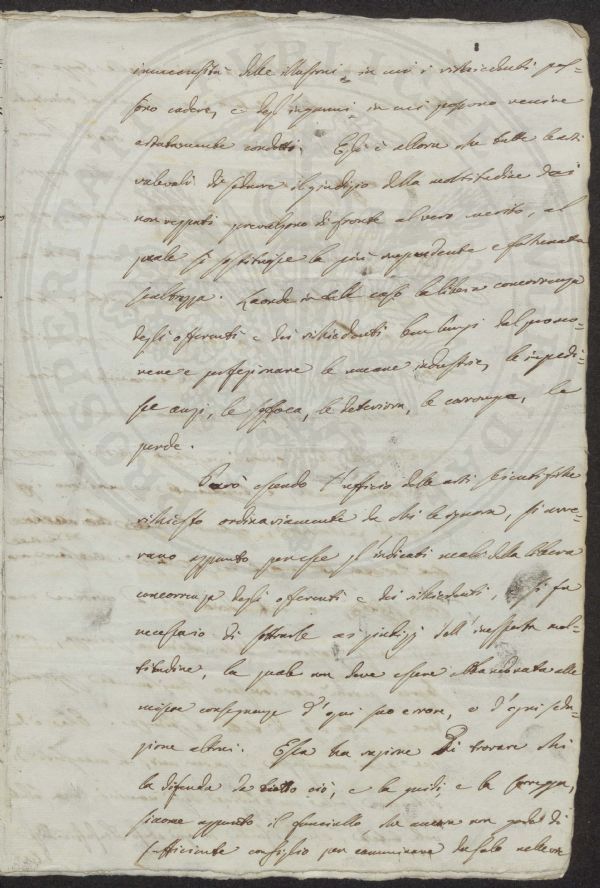 delle illusioni, in cui i richiedenti pos-
sono cadere, e degl'inganni, in cui possono venire
astutamente condotti. Egli è allora che tutte le arti
valevoli di sedurre il giudizio della moltitudine dai
prevalgono di fronte al vero merito, al
quale si sostituisce la più e sfrenata
Laonde in tale caso la libera concorrenza
degli offerenti e dei richiedenti ben lungi dal promo-
vere e perfezionare le umane industrie, le impedi-
sce anzi, le soffoca, le deteriora, le corrompe, le
perde.
Però essendo l'ufficio delle arti scientifiche
richiesto ordinariamente da chi le ignora, si avve-
rano appunto per esse gl'indicati mali della libera
concorrenza degli offerenti e dei richiedenti, e si fa
necessario di sottrarle ai giudizj dell'inesperta mol-
titudine, la quale non deve essere abbandonata alle
misere conseguenze d'ogni suo errore, e d'ogni sedu-
zione altrui. Essa ha ragione di trovare chi
la difenda da tutto ciò, e la guidi, e la corregga,
siccome appunto il fanciullo che ancora non gode di
sufficiente consiglio per camminare da solo nelle